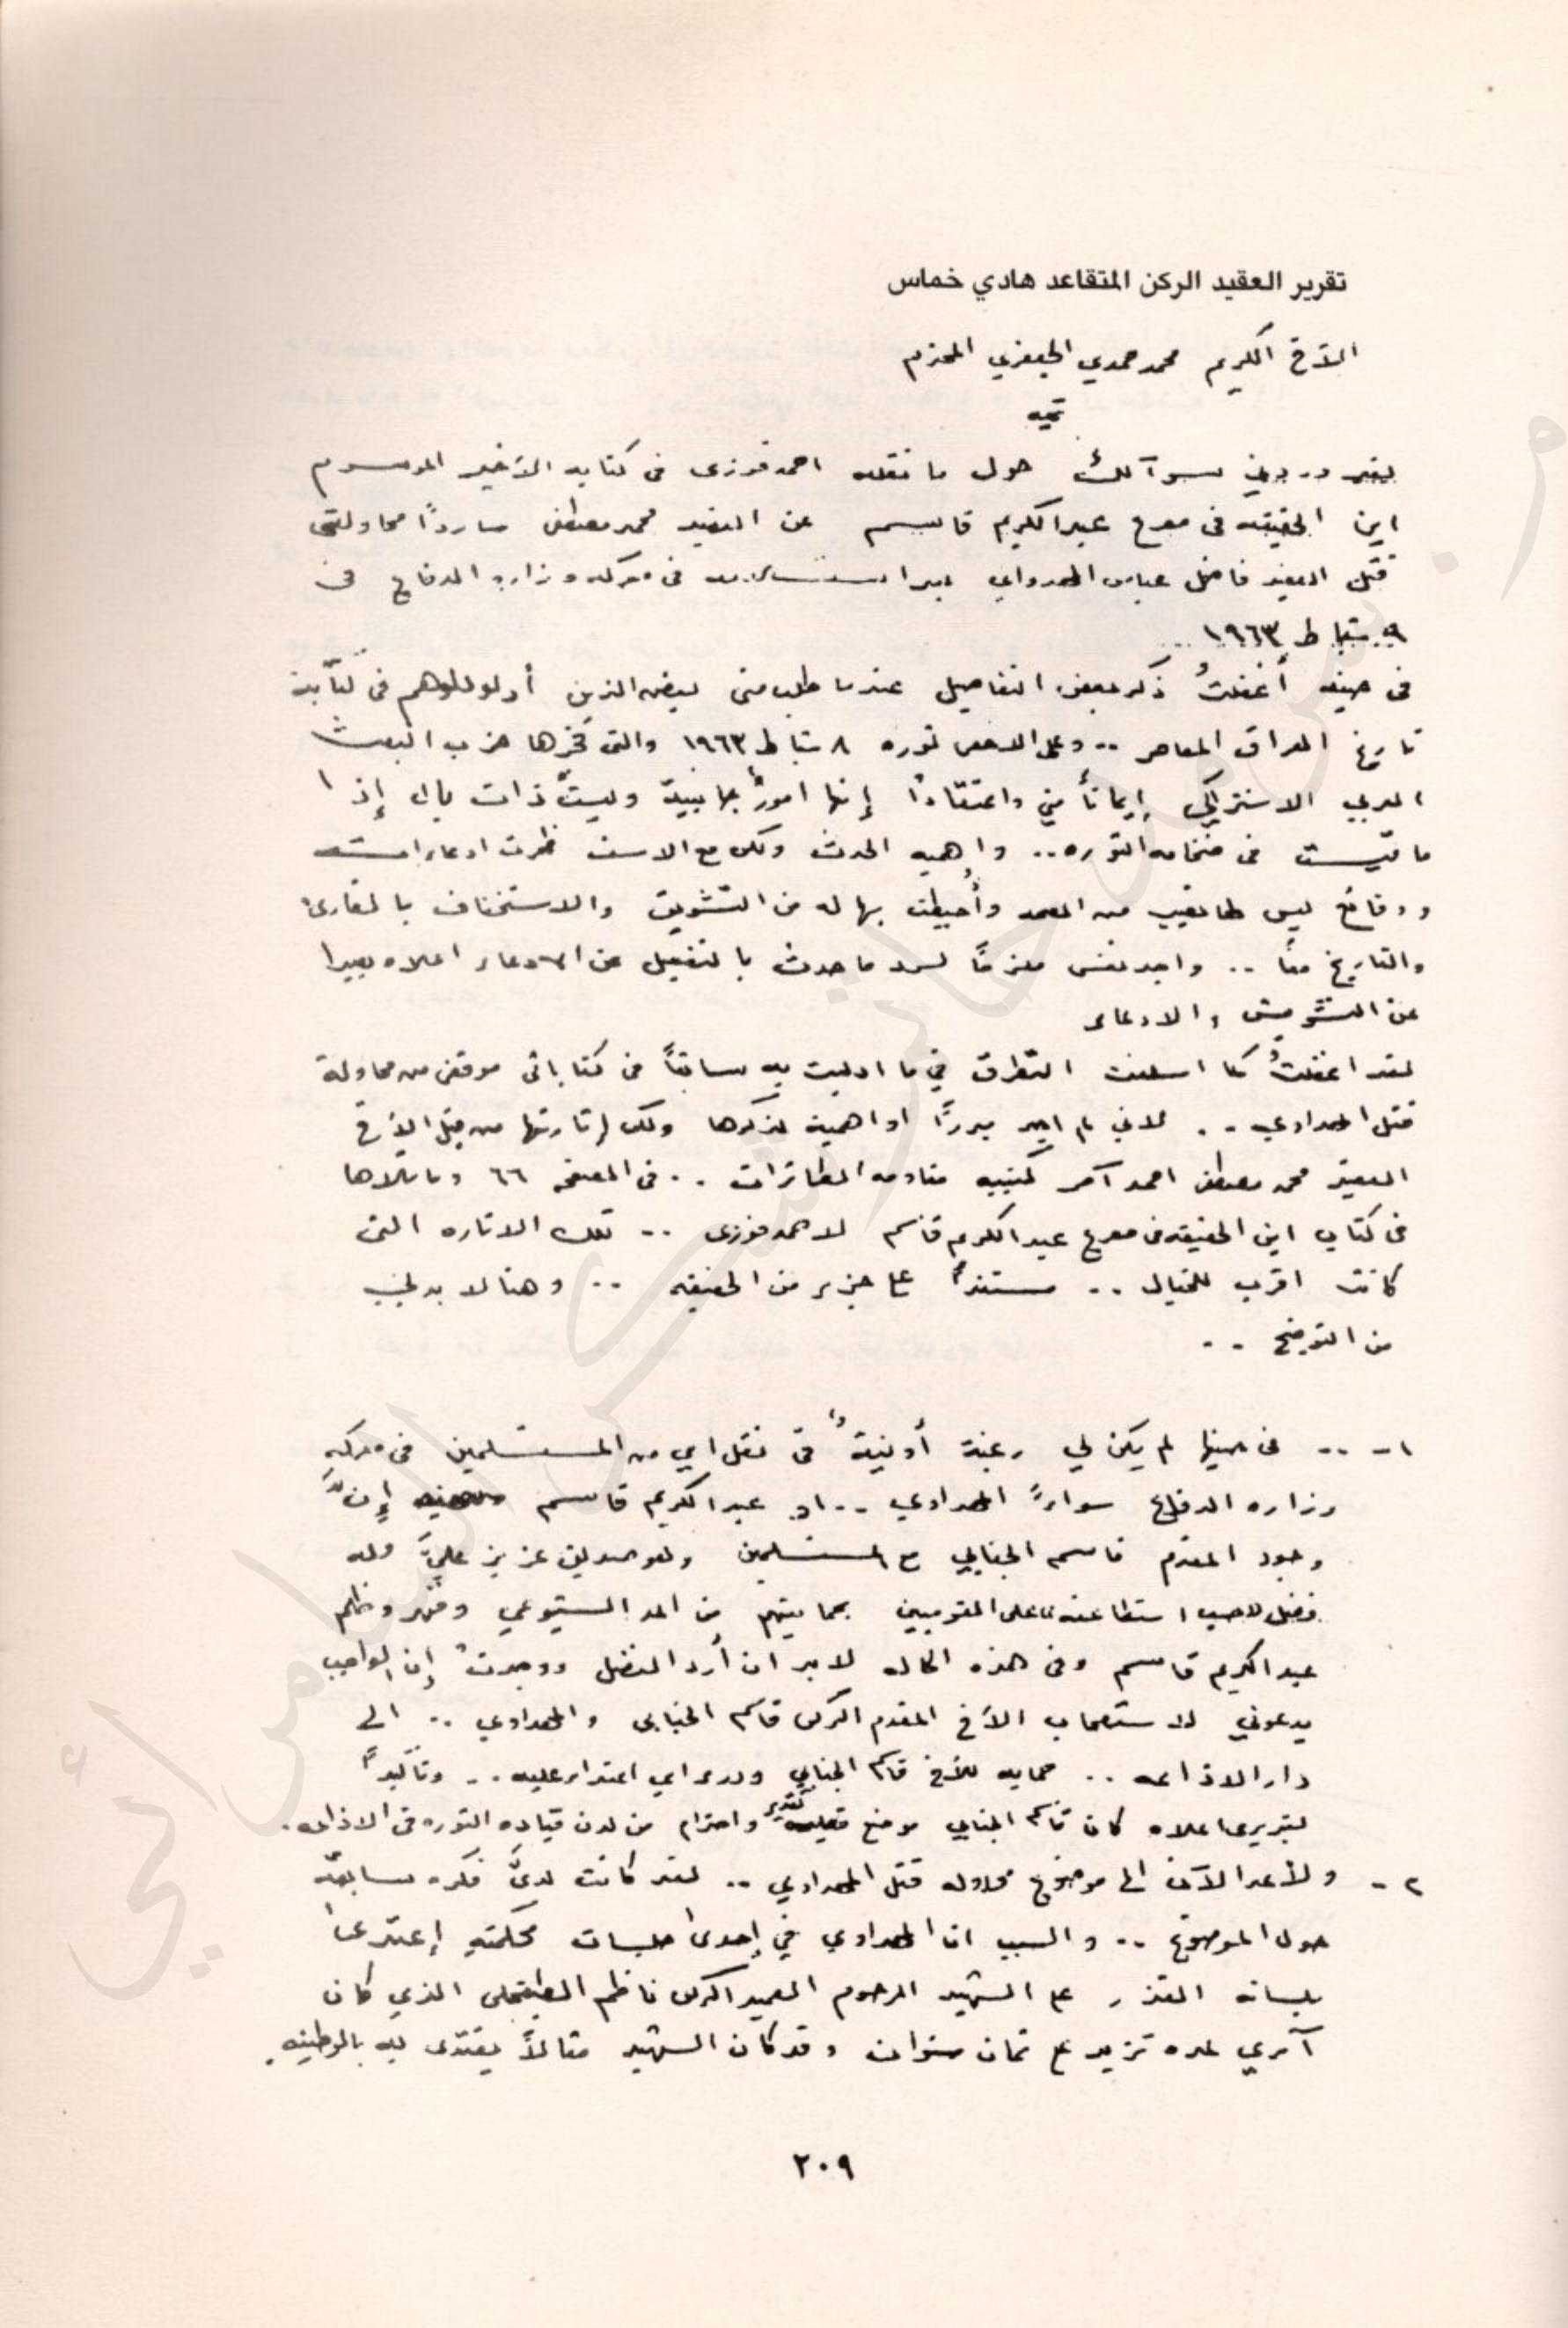 تقرير العقيد الركن المتقاعد هادي خماس
الأخ الكريم محمد حمدي الجعفري المحترم
تحيه
لقد وردني سوآلك حول ما نقله احمد فوزى فى كتابه الأخير الموسوم
اين الحقيقه فى مصرع عبد الكريم قاسم عن العقيد محمد مصطفى ساردًا محاولتى
قتل العقيد فاضل عباس المهداوي بعد استسلامه فى معركه وزاره الدفاع فى
٩ شباط ١٩٦٣ ...
فى حينه أغفلتُ ذكر بعض التفاصيل عندما طلب منى بعض الذين أدلو بدلوهم فى كتآبة
تاريخ العراق المعاصر .. وعلى الاخص ثوره ٨ شباط ١٩٦٣ والتى فجرها حزب البعث
العربي الاشتراكي إيمانأ مني واعتقادًا إنها امورًا جانبية وليستْ ذات بال إذا
ما قيست فى ضخامه الثوره .. وإهميه الحدث ولكن مع الاسف ظهرت ادعاءات
ووقائع ليس لها نصيب من الصحه وأُحيطت بهاله من التشويق والاستخفاف بالقارئ
والتاريخ معاً .. واجد نفسى ملزماً لسرد ماحدث بالتفصيل عن الادعاء اعلاه بعيدا
عن التشويش والادعاء
لقد اغفلتُ كما اسلفت التطرق في ما ادليت به سابقاً فى كتاباتى موقفى من محاولة
قتل المهداوي .. لاني لم اجد مبررًا او اهمية لذكرها ولكن إثارتها من قبل الأخ
العقيد محمد مصطفى احمد آمر كتيبه مقاومه الطائرات .. فى الصفحه ٦٦ وماتلاها
فى كتاب اين الحقيقه فى مصرع عبد الكريم قاسم لاحمد فوزى .. تلك الاثاره التى
كانت اقرب للخيال .. مستنداً على جزء من الحقيقه .. وهنا لا بد لي
من التوضيح ..
١- .. فى حينها لم يكن لي رغبة أو نيةً فى نقل اي من المستسلمين فى معركه
وزاره الدفاع سواءً المهداوي .. او عبد الكريم قاسم إنَّ
وجود المقدم قاسم الجنابي مع المستسلمين وهو صديق عزيز عليَّ وله
فضل حسب استطاعته على القوميين بحمايتهم من المد الشيوعي وقهر وظلم
عبد الكريم قاسم وفى هذه الحاله لابد ان أرد الفضل ووجدتُ إن الواجب
يدعوني لاستصحاب الأخ المقدم الركن قاسم الجنابى والمهداوي .. الى
دار الاذاعه .. حمايه للأخ قاسم الجنابي ودرء اي اعتداء عليه .. وتأكيداً
لتبريرى اعلاه كان قاسم الجنابي موضع تقدير واحترام من لدن قياده الثوره فى الاذاعه.
٢- ولأعد الآن الى موضوع محاوله قتل المهداوي .. لقد كانت لديَّ فكره سابقه
حول الموضوع .. والسبب ان المهداوي في إحدى جلسات محكمته إعتدى
بلسانه القذر على الشهيد المرحوم العميد الركن ناظم الطبقجلى الذي كان
آمري لمده تزيد على ثمان سنوات وقد كان الشهيد مثالاً يقتدى به بالوطنيه
٢٠٩